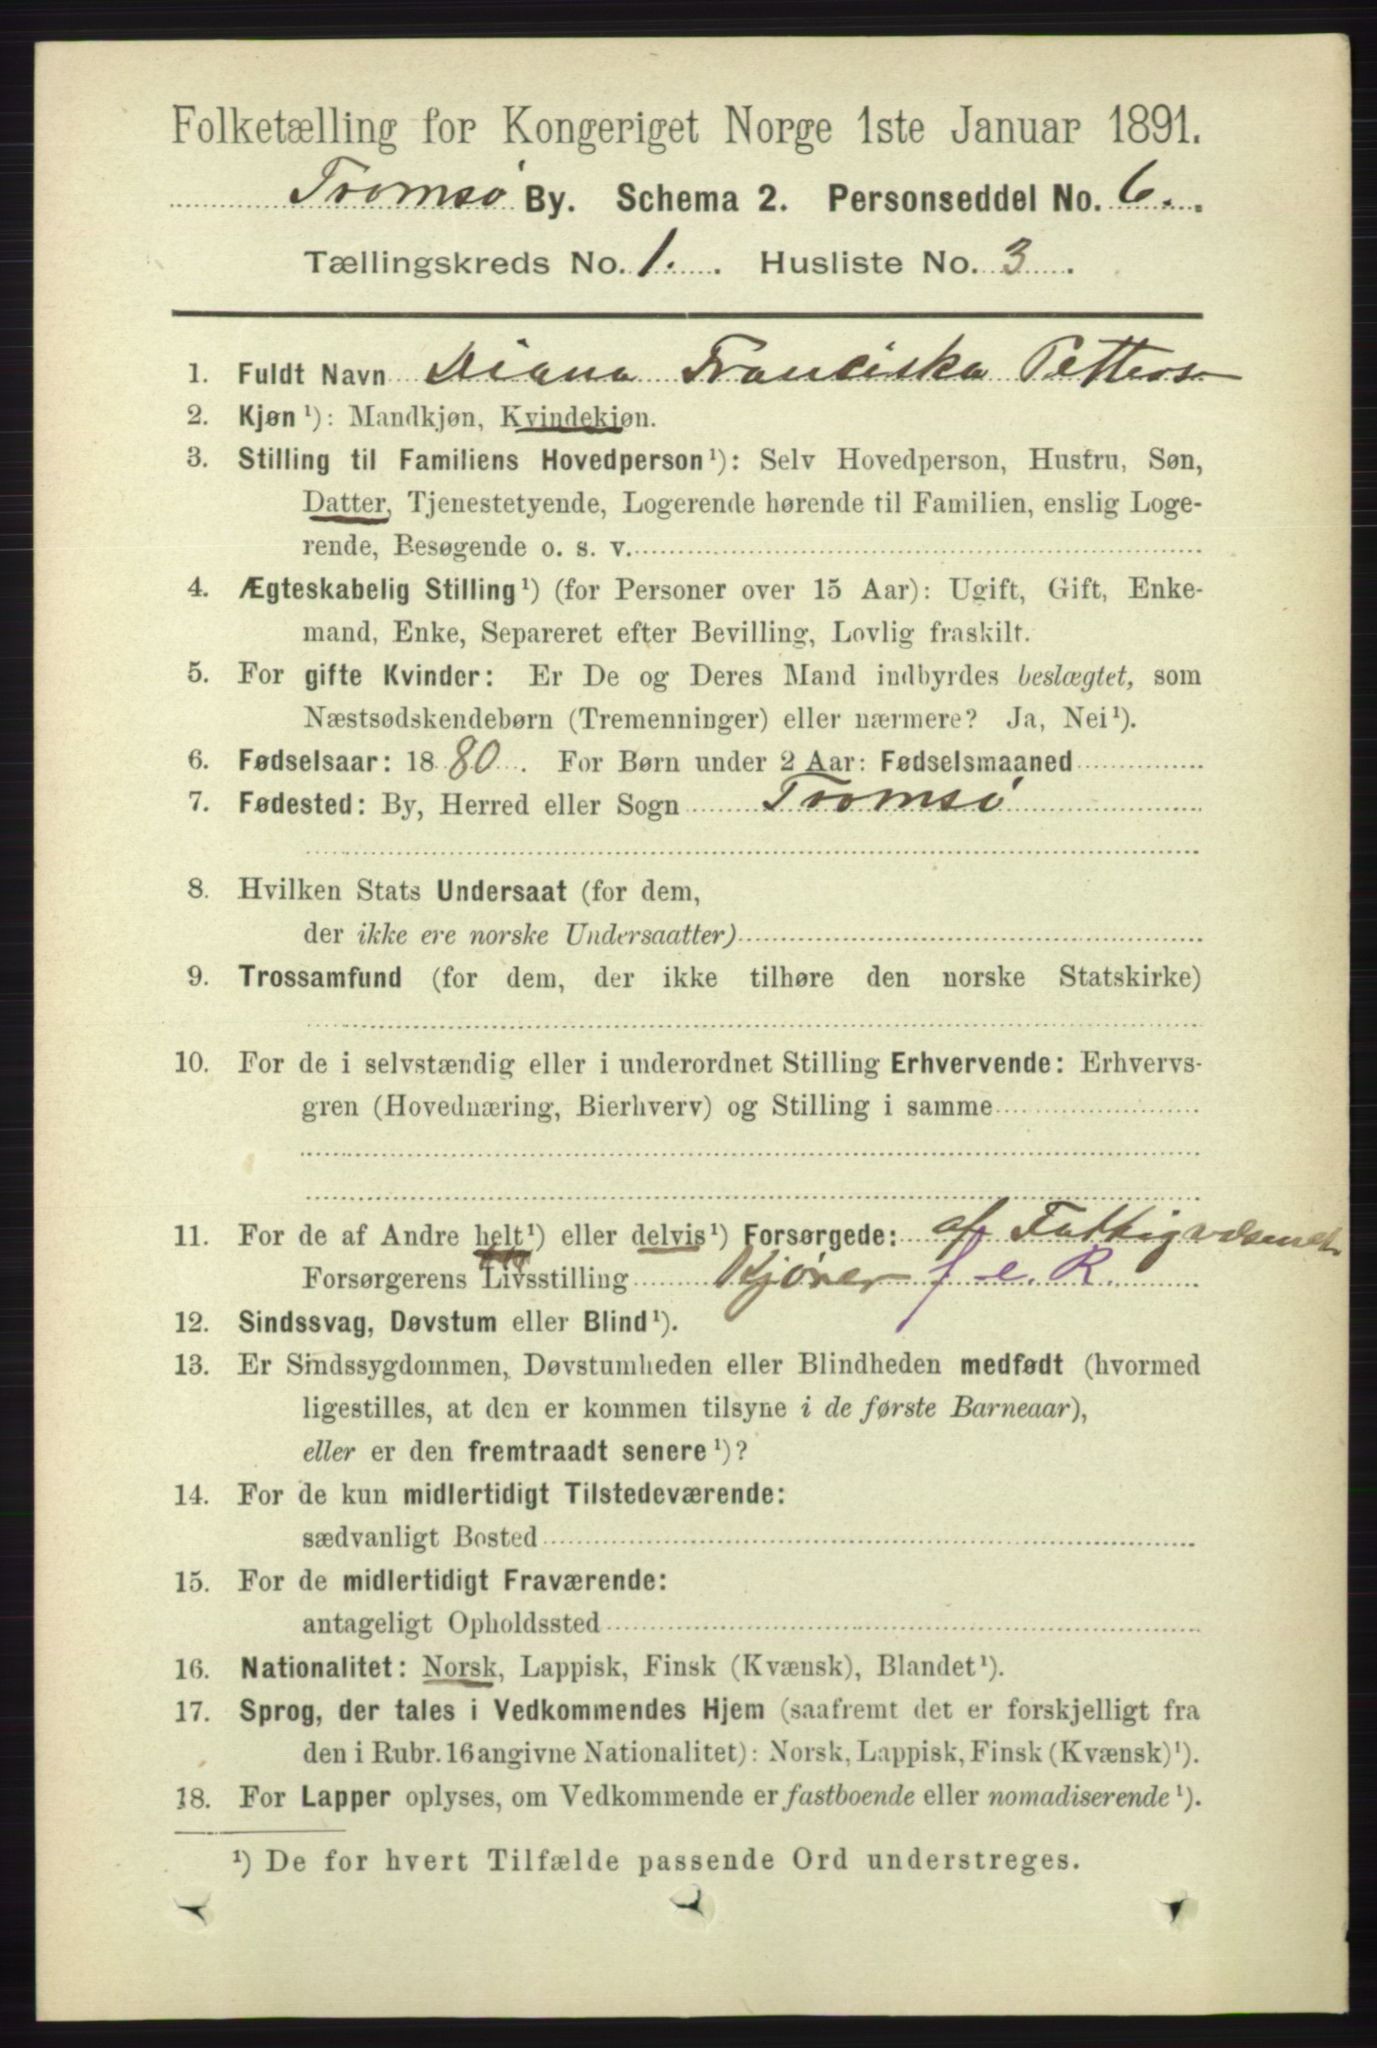 Folketælling for Kongeriget Norge 1ste Januar 1891.
Tromsø By. Schema 2. Personseddel No. 6.
Tællingskreds No. 1. Husliste No. 3
1. Fuldt Navn Diana Franciska Petters
2. Kjøn ¹): Mandkjøn, Kvindekjøn.
3. Stilling til Familiens Hovedperson ¹): Selv Hovedperson, Hustru, Søn,
Datter, Tjenestetyende, Logerende hørende til Familien, enslig Loge-
rende, Besøgende o. s. v.
4. Ægteskabelig Stilling ¹) (for Personer over 15 Aar): Ugift, Gift, Enke-
mand, Enke, Separeret efter Bevilling, Lovlig fraskilt.
5. For gifte Kvinder: Er De og Deres Mand indbyrdes beslægtet, som
Næstsødskendebørn (Tremenninger) eller nærmere? Ja, Nei ¹).
6. Fødselsaar: 1880. For Børn under 2 Aar: Fødselsmaaned
7. Fødested: By, Herred eller Sogn Tromsø
8. Hvilken Stats Undersaat (for dem,
der ikke ere norske Undersaatter)
9. Trossamfund (for dem, der ikke tilhøre den norske Statskirke)
10. For de i selvstændig eller i underordnet Stilling Erhvervende: Erhvervs-
gren (Hovednæring, Bierhverv) og Stilling i samme
11. For de af Andre helt ¹) eller delvis ¹) Forsørgede: af Fattigvæsenet
Forsørgerens Livsstilling f e. R.
12. Sindssvag, Døvstum eller Blind ¹).
13. Er Sindssygdommen, Døvstumheden eller Blindheden medfødt (hvormed
ligestilles, at den er kommen tilsyne i de første Barneaar),
eller er den fremtraadt senere ¹)?
14. For de kun midlertidigt Tilstedeværende:
sædvanligt Bosted
15. For de midlertidigt Fraværende:
antageligt Opholdssted
16. Nationalitet: Norsk, Lappisk, Finsk (Kvænsk), Blandet ¹).
17. Sprog, der tales i Vedkommendes Hjem (saafremt det er forskjelligt fra
den i Rubr. 16 angivne Nationalitet): Norsk, Lappisk, Finsk (Kvænsk) ¹).
18. For Lapper oplyses, om Vedkommende er fastboende eller nomadiserende ¹).
¹) De for hvert Tilfælde passende Ord understreges.